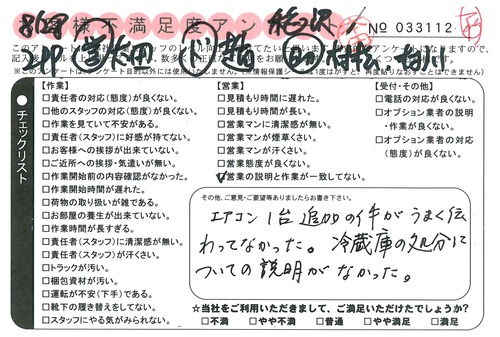 お客様不満足度アンケート
№ 033112
※このアンケートはアンケート目的以外には使用いたしません。
チェックリスト
【作業】
□責任者の対応(態度)が良くない。
□他のスタッフの対応(態度)が良くない。
□作業を見ていて不安がある。
□責任者(スタッフ)に好感が持てない。
□お客様への挨拶が出来ていない。
□ご近所への挨拶・気遣いが無い。
□作業開始前の内容確認がなかった。
□作業開始時間が遅れた。
□荷物の取り扱いが雑である。
□お部屋の養生が出来ていない。
□作業時間が長すぎる。
□責任者(スタッフ)に清潔感が無い。
□責任者(スタッフ)が汗くさい。
□トラックが汚い。
□梱包資材が汚い。
□運転が不安(下手)である。
□靴下の履き替えをしてない。
□スタッフにやる気がみられない。
【営業】
□見積もり時間に遅れた。
□見積もり時間が長い。
□営業マンに清潔感が無い。
□営業マンが煙草くさい。
□営業マンが汗くさい。
□営業態度が良くない。
□営業の説明と作業が一致してない。
【受付・その他】
□電話の対応が良くない。
□オプション業者の説明
・作業が良くない。
□オプション業者の対応
(態度)が良くない。
その他、ご意見・ご要望等ありましたらお書き下さい。
エアコン1台追加の件がうまく伝
わってなかった。冷蔵庫の処分に
ついての説明がなかった。
☆当社をご利用いただきまして、ご満足いただけたでしょうか?
□不満 □やや不満 □普通 □やや満足 □満足